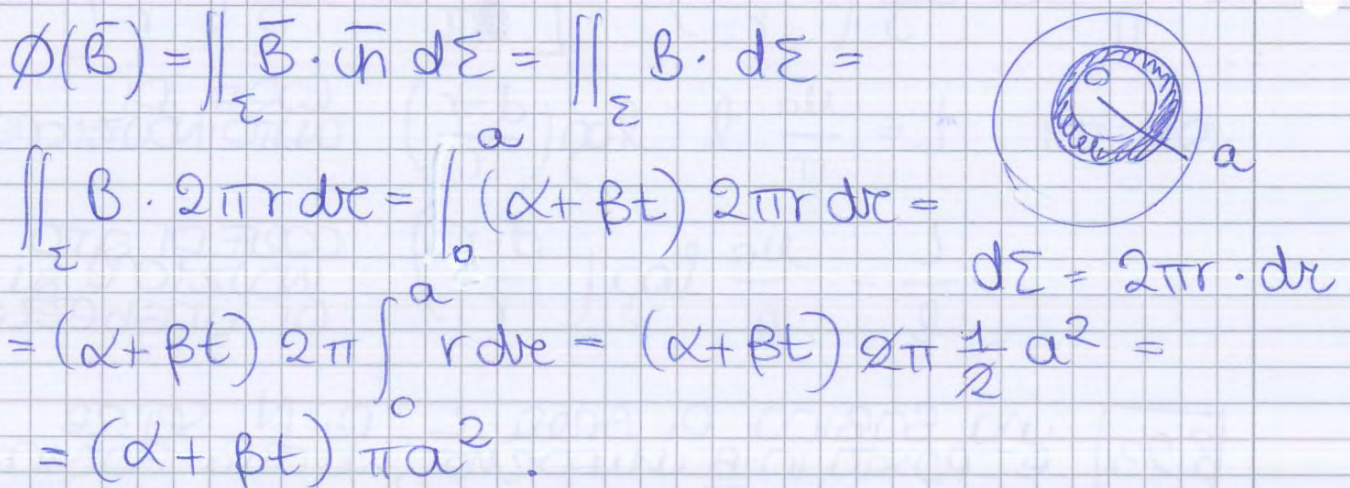 Φ(B̄) = ∬_Σ B̄ · ūn dΣ = ∬_Σ B · dΣ =
o
a
∬_Σ B · 2πr dr = ∫_0^a (α + βt) 2πr dr =
dΣ = 2πr · dr
= (α + βt) 2π ∫_0^a r dr = (α + βt) 2π 1/2 a² =
= (α + βt) πa².